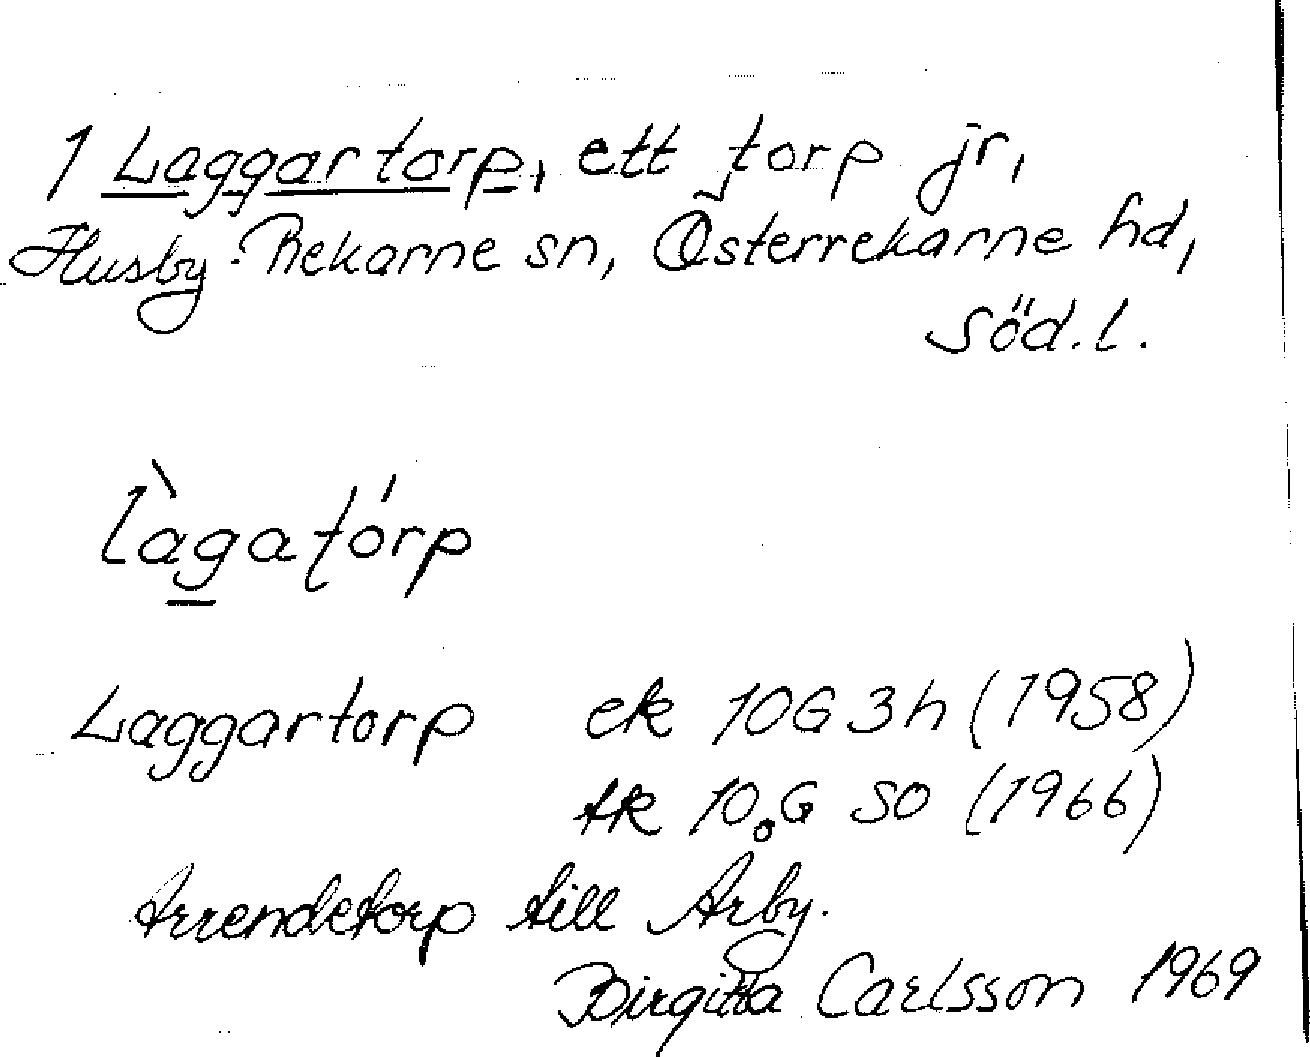 1 Laggartorp, ett torp jr,
Husby-Rekarne sn, Österrekarne hd,
Söd.l.
làgatórp
Laggartorp ek 10G 3h (1958)
tk 10 G SO (1966)
Arrendetorp till Årby.
Birgitta Carlsson 1969